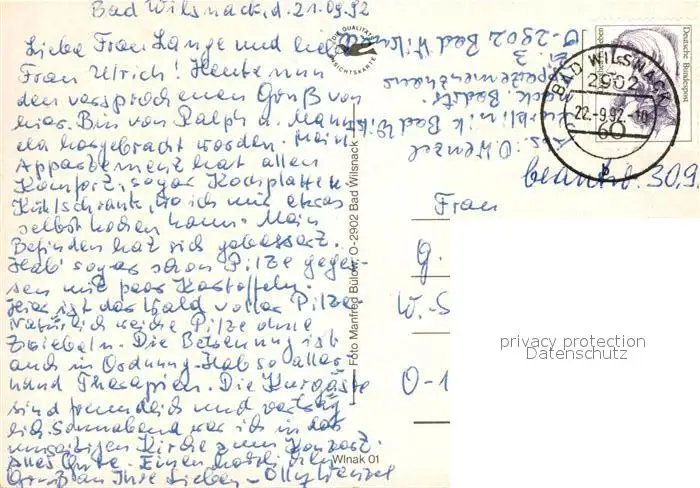 Bad Wilsnack, d. 21.09.92
Liebe Frau Lange und liebe
Frau Ulrich! Heute nun
den versprochenen Gruß von
hier. Bin von Ralph u. Manu
ela hergebracht worden. Mein
Appartement hat allen
Komfort, sogar Kochplatte u.
Kühlschrank, wo ich mir etwas
selbst kochen kann. Mein
Befinden hat sich gebessert.
Hab' sogar schon Pilze geges-
sen mit paar Kartoffeln.
Hier ist der Wald voller Pilze.
Natürlich weiche Pilze ohne
Zwiebeln. Die Betreuung ist
auch in Ordnung. Hab so aller-
hand Therapien. Die Kurgäste
sind freundlich und
Sonnabend war ich in der
Kirche zum Konzert.
Alles Gute. Einen herzlichen
Gruß an Ihre Lieben - Olly Wenzel
DIE QUALITÄTS
ANSICHTSKARTE
Foto Manfred Bülow, O-2902 Bad Wilsnack
Wlnak 01
Abs.: O. Wenzel
Kurklinik Bad Wils
nack Badstr.
Appartementhaus
3
O-2902 Bad Wilsn
Deutsche Bundespost
BAD WILSNACK
2902
22.-9.92.-10
60
b
beantw. 30.9
Frau
G.
W.-S
O-1
privacy protection
Datenschutz